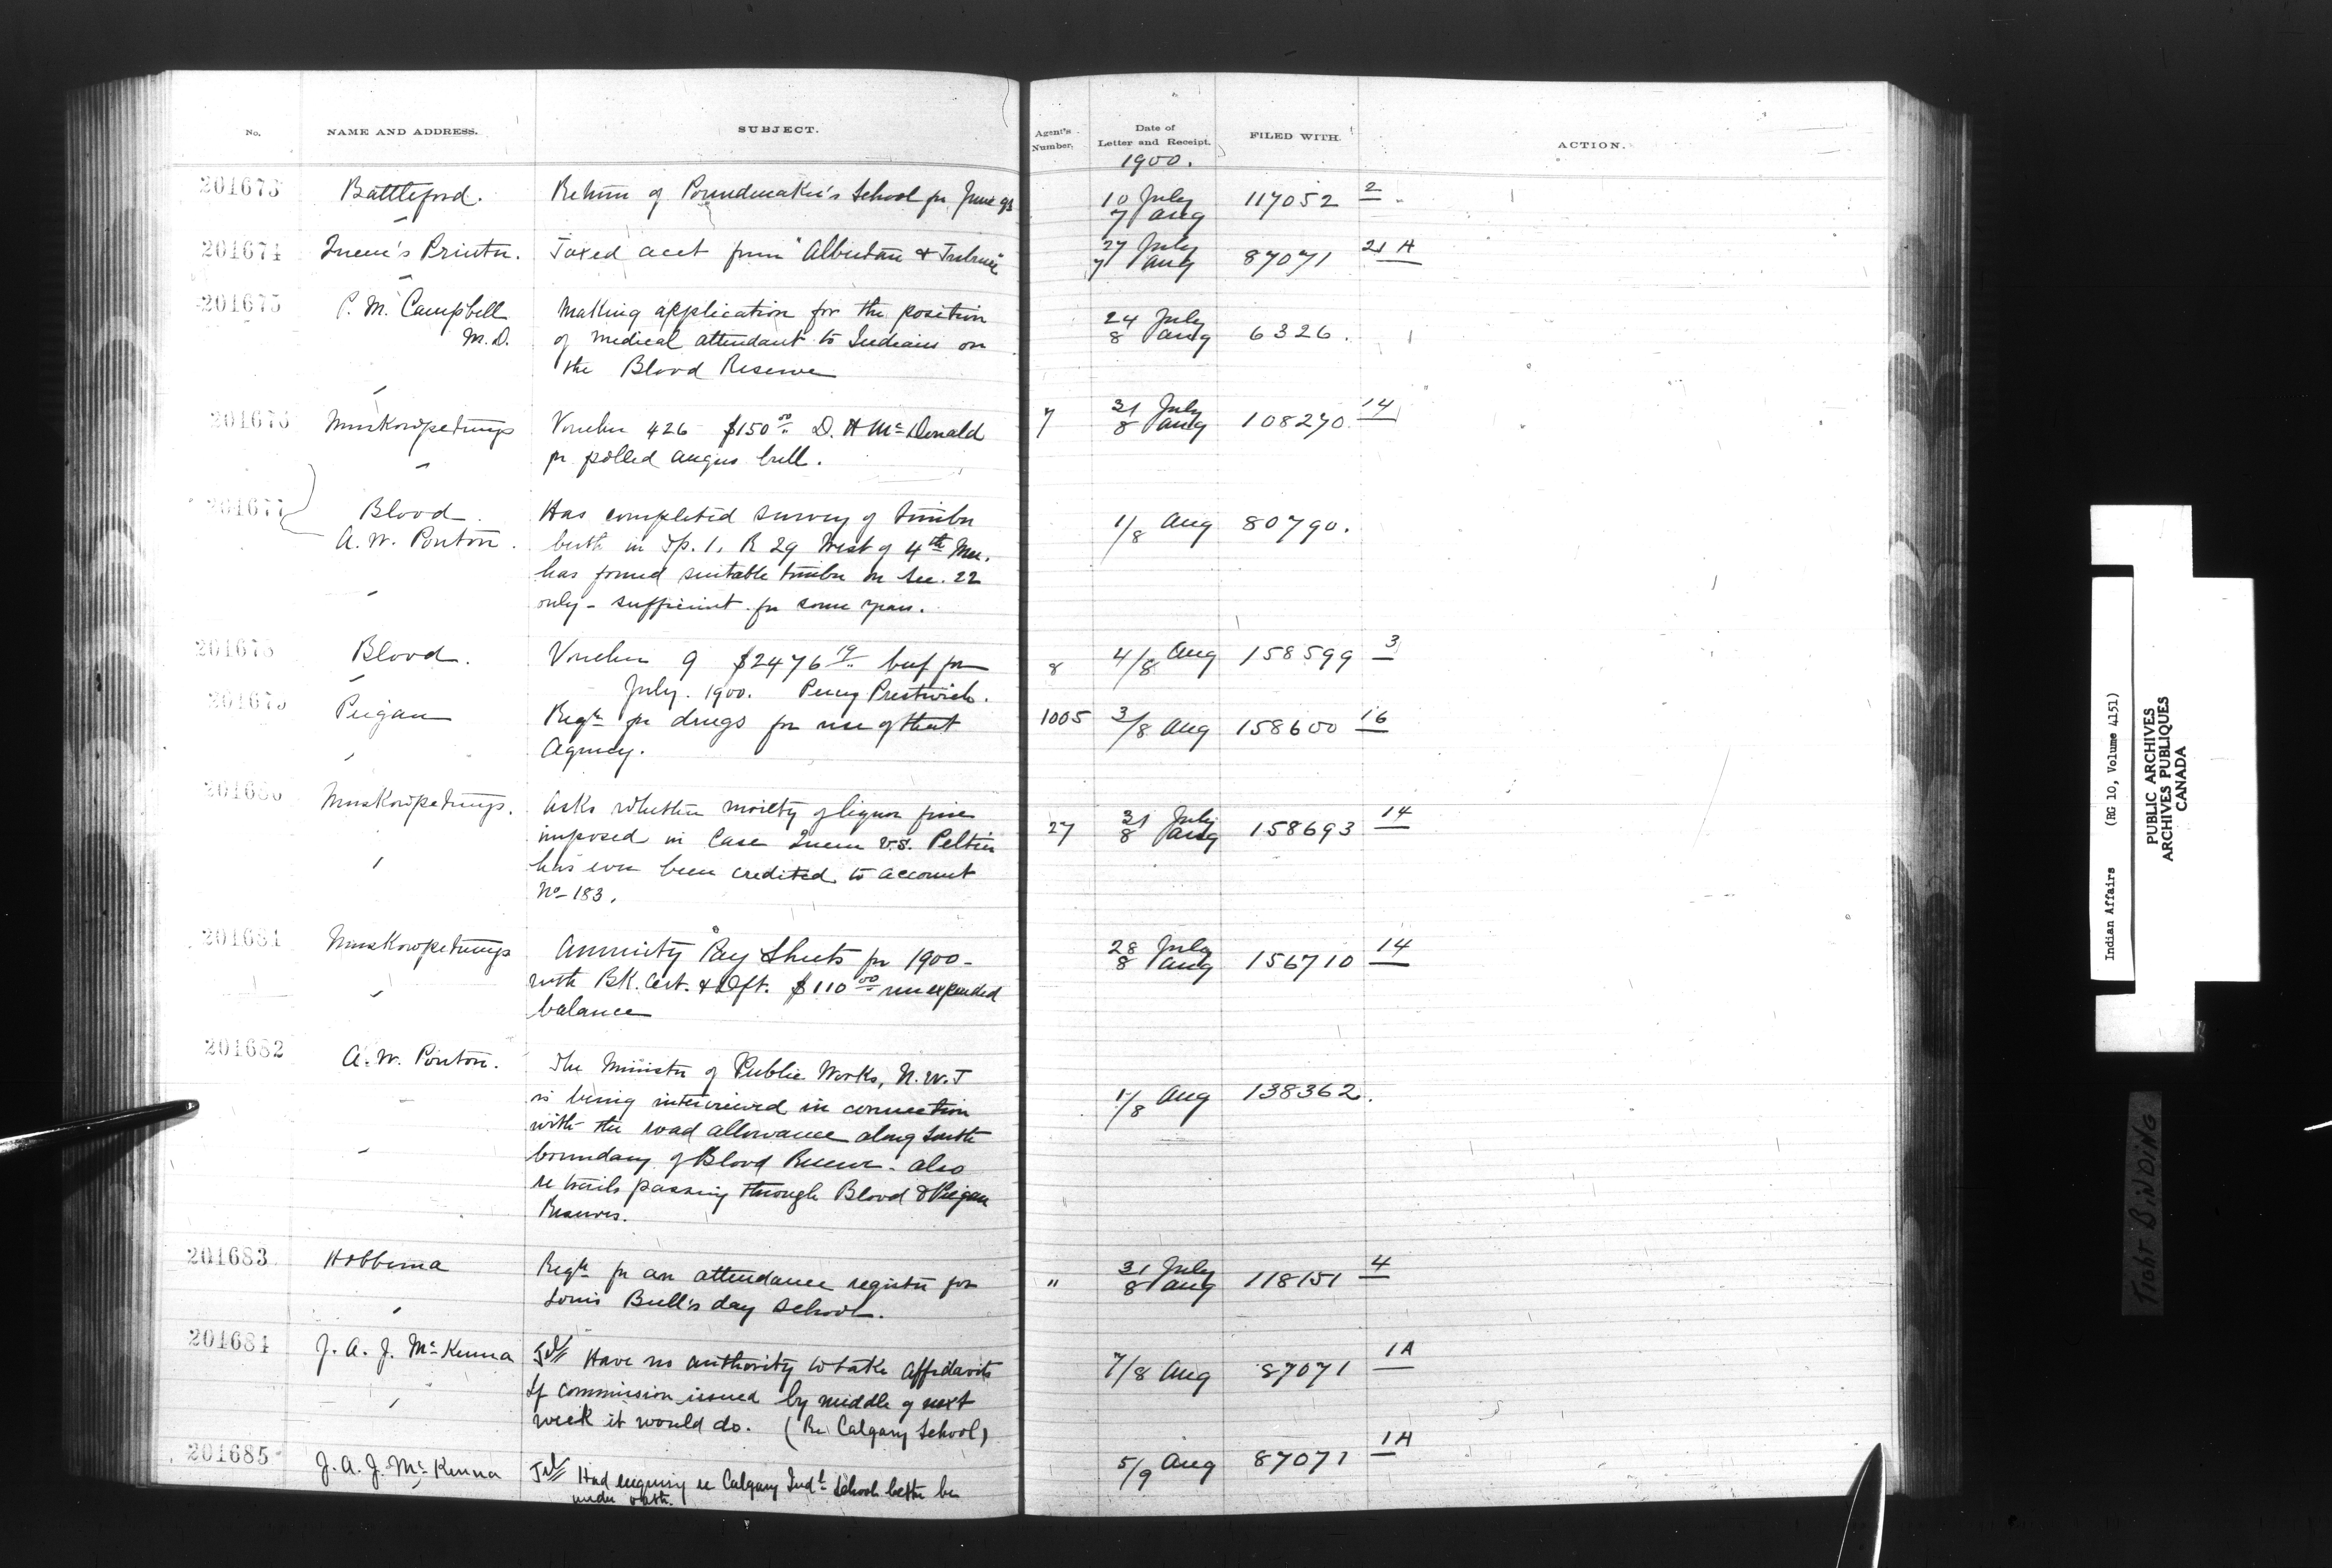 No. NAME AND ADDRESS. SUBJECT. Agent's Number. Date of Letter and Receipt. FILED WITH. ACTION.
1900.
201673 Battleford. Return of Poundmaker's School for June qr 10 July 117052 2
7 Aug
201674 Queen's Printer. Taxed acct from "Albertan & Tribune" 27 July 87071 21 A
7 Aug
201675 P. M. Campbell Making application for the position 24 July 6326.
M.D. of medical attendant to Indians on 8 Aug
the Blood Reserve
201676 Muskowpetungs Voucher 426 $150 00 D. H McDonald 7 31 July 108270 14
for polled angus bull. 8 Aug
201677 Blood. Has completed survey of timber 1/8 Aug 80790.
A. W. Ponton. berth in Tp. 1, R 29 West of 4th Mer.
has found suitable timber on Sec. 22
only - sufficient for some years.
201678 Blood. Voucher 9 $2476 19 beef for 8 4/8 Aug 158599 3
July. 1900. Percy Prestwich.
201679 Peigan Reqn for drugs for use of that 1005 3/8 Aug 158600 16
Agency.
201680 Muskowpetungs. Asks whether moiety of liquor fine 27 31 July 158693 14
imposed in Case Queen v.s. Peltier 8 Aug
has ever been credited to account
No 183.
201681 Muskowpetungs Annuity Pay Sheets for 1900 - 28 July 156710 14
with BK. Cert. & Dft. $110 00 unexpended 8 Aug
balance
201682 A. W. Ponton. The Minister of Public Works, N.W.T 1/8 Aug 138362.
is being interviewed in connection
with the road allowance along South
boundary of Blood Reserve - also
re trails passing through Blood & Peigan
Reserves.
201683 Hobbema Reqn for an attendance register for " 31 July 118151 4
Louis Bull's day school. 8 Aug
201684 J. A. J. McKenna Tel// Have no authority to take Affidavits 7/8 Aug 87071 1A
If commission issued by middle of next
week it would do. (Re Calgary School)
201685 J. A. J. McKenna Tel// Had enquiry re Calgary Indl School better be 5/9 Aug 87071 1A
under oath.
Indian Affairs (RG 10, Volume 4151)
PUBLIC ARCHIVES
ARCHIVES PUBLIQUES
CANADA
TIGHT BINDING